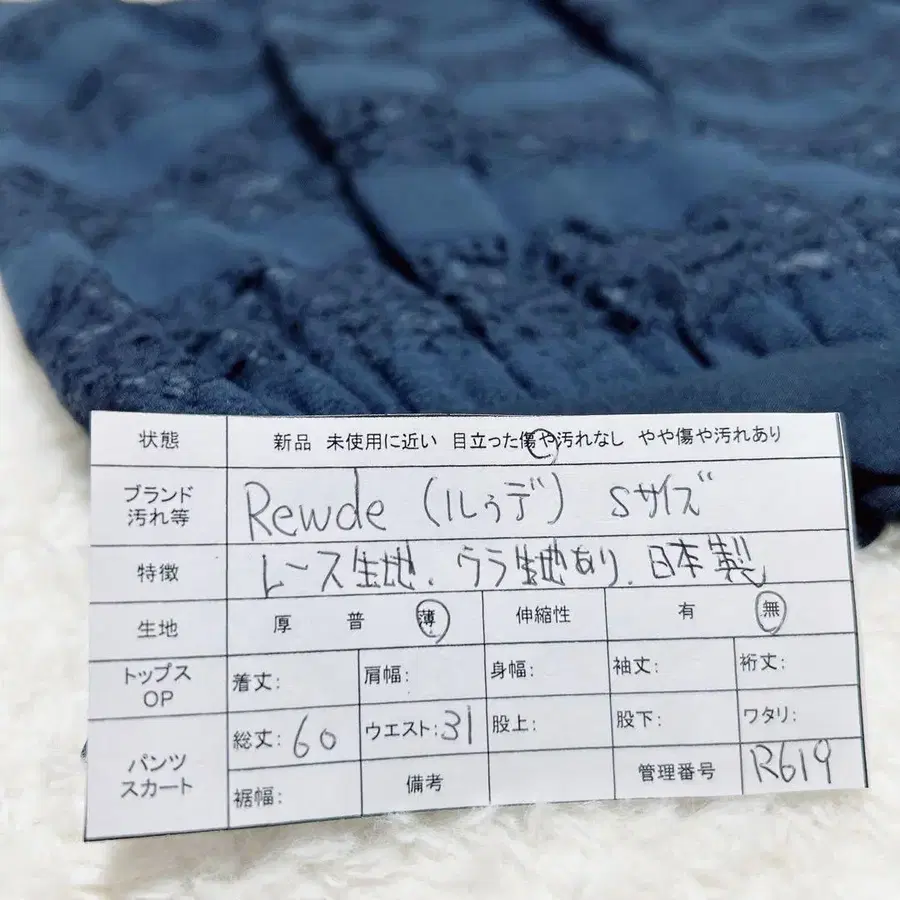 状態 新品 未使用に近い 目立った傷や汚れなし やや傷や汚れあり
ブランド 汚れ等 Rewde (ルゥデ) Sサイズ
特徴 レース生地、ウラ生地あり、日本製
生地 厚 普 薄 伸縮性 有 無
トップス OP 着丈: 肩幅: 身幅: 袖丈: 裄丈:
パンツ スカート 総丈: 60 ウエスト: 31 股上: 股下: ワタリ:
裾幅: 備考 管理番号 R619